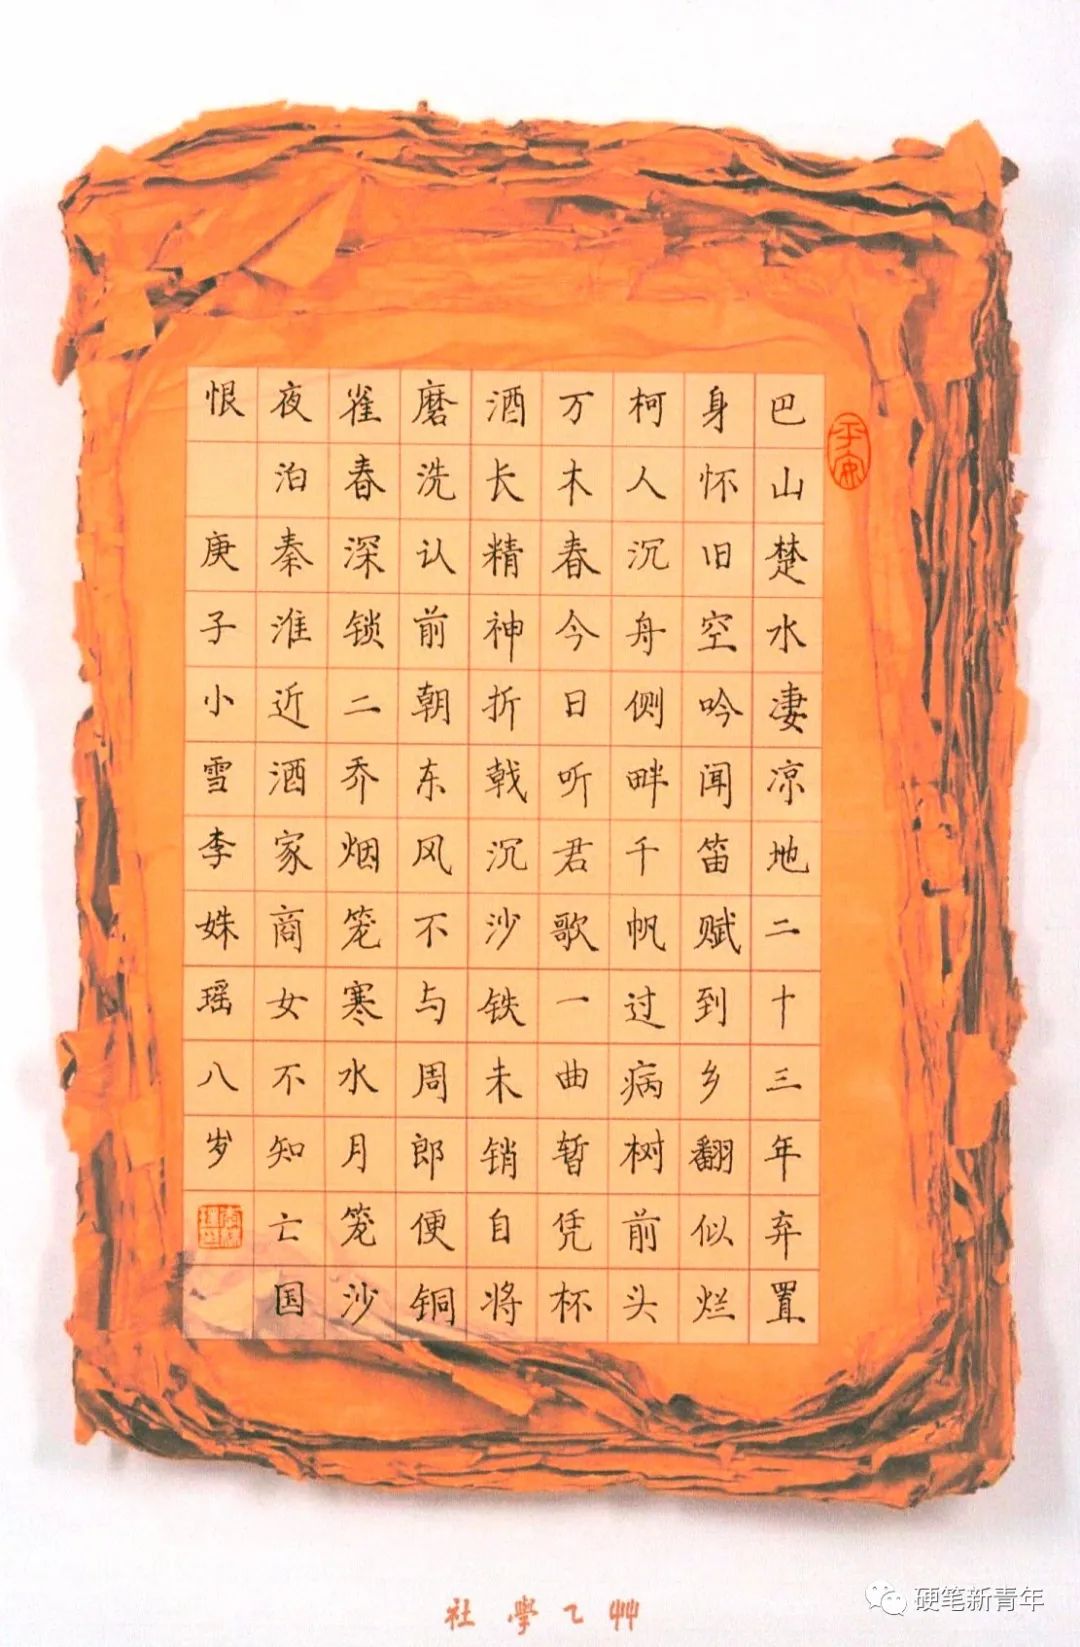 平安
巴山楚水凄凉地二十三年弃置
身怀旧空吟闻笛赋到乡翻似烂
柯人沉舟侧畔千帆过病树前头
万木春今日听君歌一曲暂凭杯
酒长精神折戟沉沙铁未销自将
磨洗认前朝东风不与周郎便铜
雀春深锁二乔烟笼寒水月笼沙
夜泊秦淮近酒家商女不知亡国
恨 庚子小雪李姝瑶八岁
艸乙學社
硬笔新青年